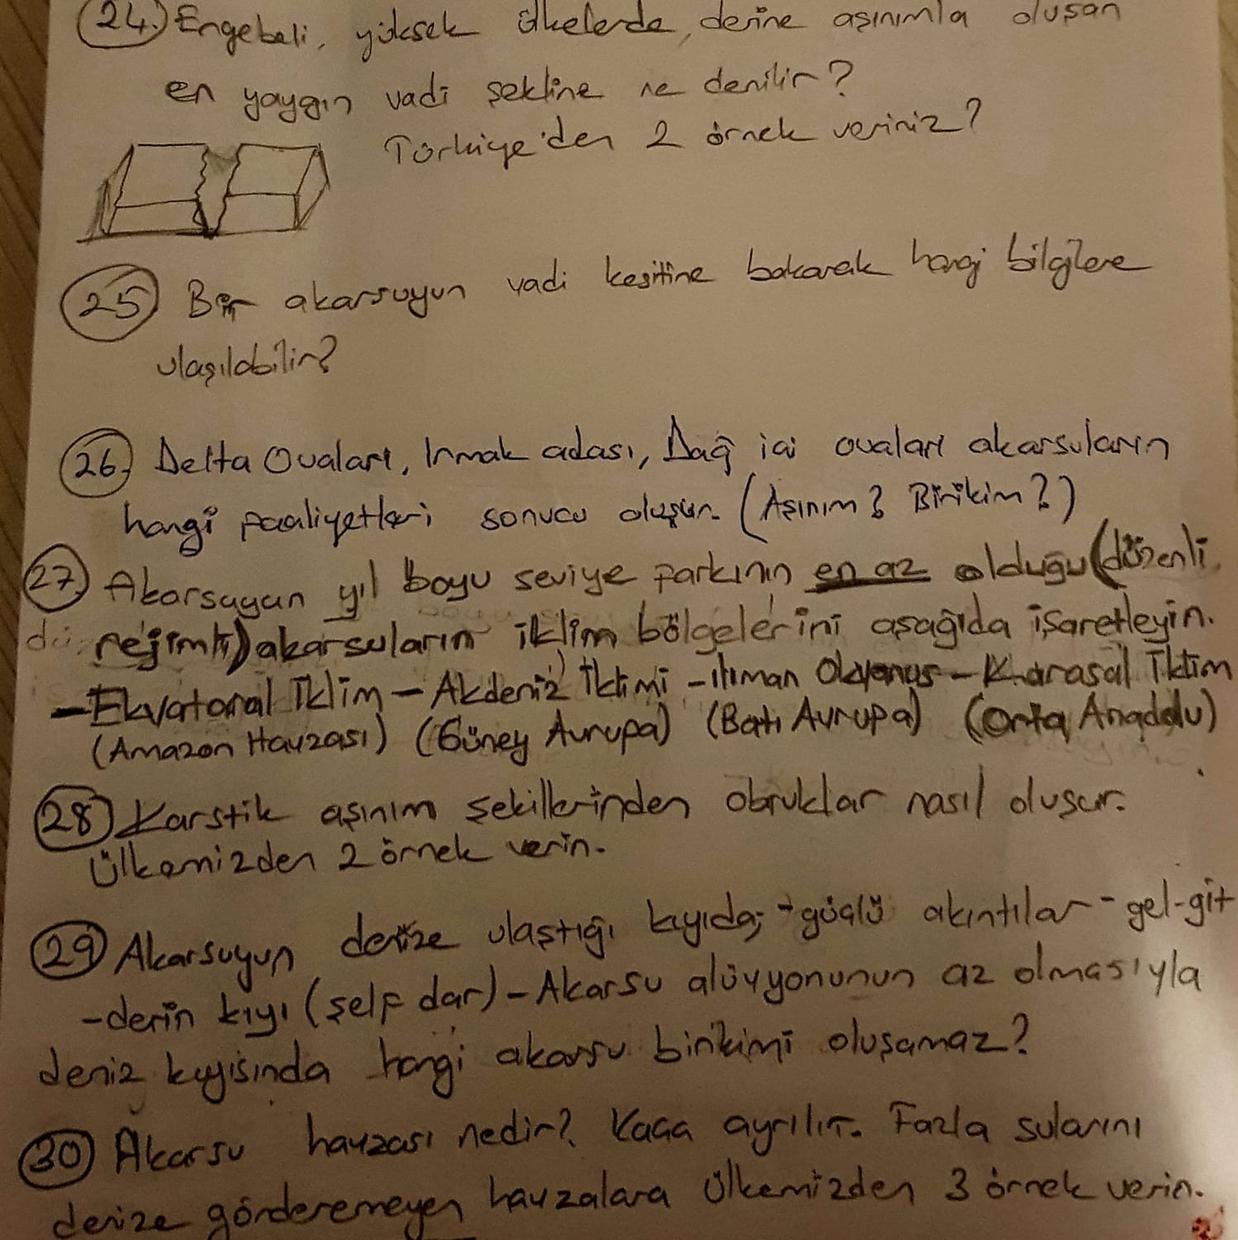 24) Engebeli, yüksek ülkelerde, derine aşınımla oluşan
en yaygın vadi şekline ne denilir?
Türkiye'den 2 örnek veriniz?
25) Bir akarsuyun vadi kesitine bakarak hangi bilgilere
ulaşılabilir?
26) Delta Ovaları, Irmak adası, Dağ içi ovaları akarsuların
hangi faaliyetleri sonucu oluşur. (Aşınım? Birikim?)
27) Akarsuyun yıl boyu seviye farkının en az olduğu (düzenli
rejimli) akarsuların iklim bölgelerini aşağıda işaretleyin.
-Ekvatoral İklim - Akdeniz İklimi - ılıman Okyanus - Karasal İklim
(Amazon Havzası) (Güney Avrupa) (Batı Avrupa) (Orta Anadolu)
28) Karstik aşınım şekillerinden obruklar nasıl oluşur.
Ülkemizden 2 örnek verin.
29) Akarsuyun denize ulaştığı kıyıda; -güçlü akıntılar - gel-git
-derin kıyı (şelf dar) - Akarsu alüvyonunun az olmasıyla
deniz kıyısında hangi akarsu birikimi oluşamaz?
30) Akarsu havzası nedir? Kaça ayrılır. Fazla sularını
denize gönderemeyen havzalara Ülkemizden 3 örnek verin.